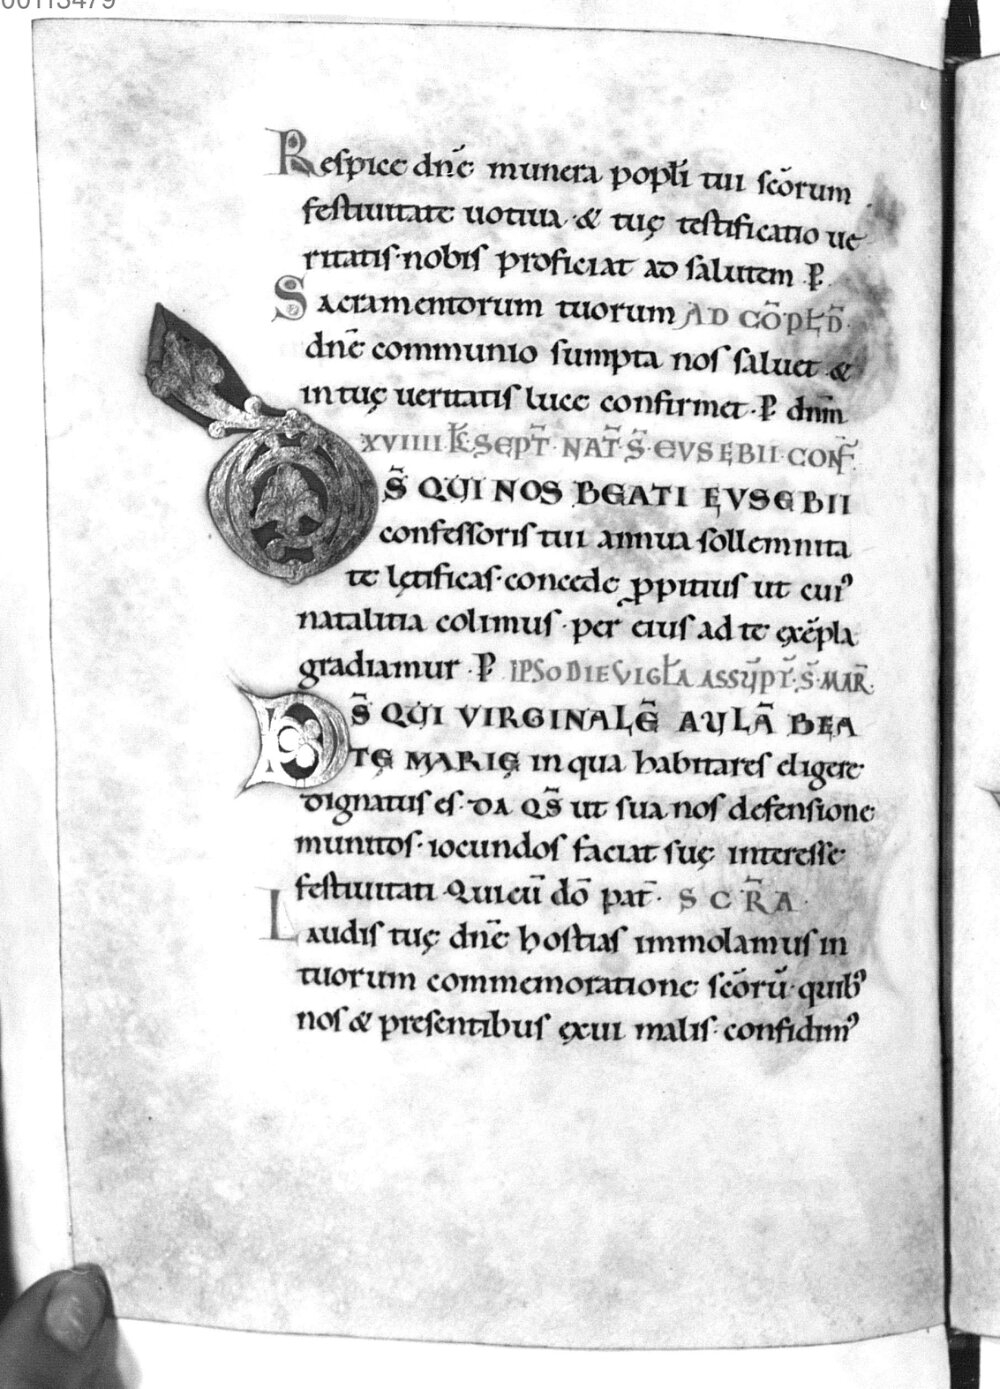 00113479
Respice dn̄e munera popłi tui sc̄orum
festiuitate uotiua · & tuę testificatio ue
ritatis · nobis proficiat ad salutem · P̄
Sacramentorum tuorum AD CŌPŁD̄·
dn̄e communio sumpta nos saluet &
in tuę ueritatis luce confirmet · P̄ dnm̄
XVIIII · K̄Ł SEPT̄ · NAT̄ · S̄ · EVSEBII · CONF̄ ·
D̄S QUI NOS BEATI EVSEBII
confessoris tui annua sollemnita
te lętificas · concede ꝓpitius ut cui᾿
natalitia colimus · per eius ad te exēpla
gradiamur · P̄ IPSO DIE VIGŁA ASSŪPT̄ · S̄ · MAR̄ ·
D̄S QUI VIRGINALĒ AULĀ BEA
TĘ MARIĘ in qua habitares eligere
dignatus es · DA QS̄ ut sua nos defensione
munitos · iocundos faciat suę interesse
festiuitati · Qui cū dō pat̄ · SCR̄A ·
Laudis tuę dn̄e hostias immolamus in
tuorum commemoratione sc̄orū · quib᾿
nos & presentibus exui malis · confidim᾿